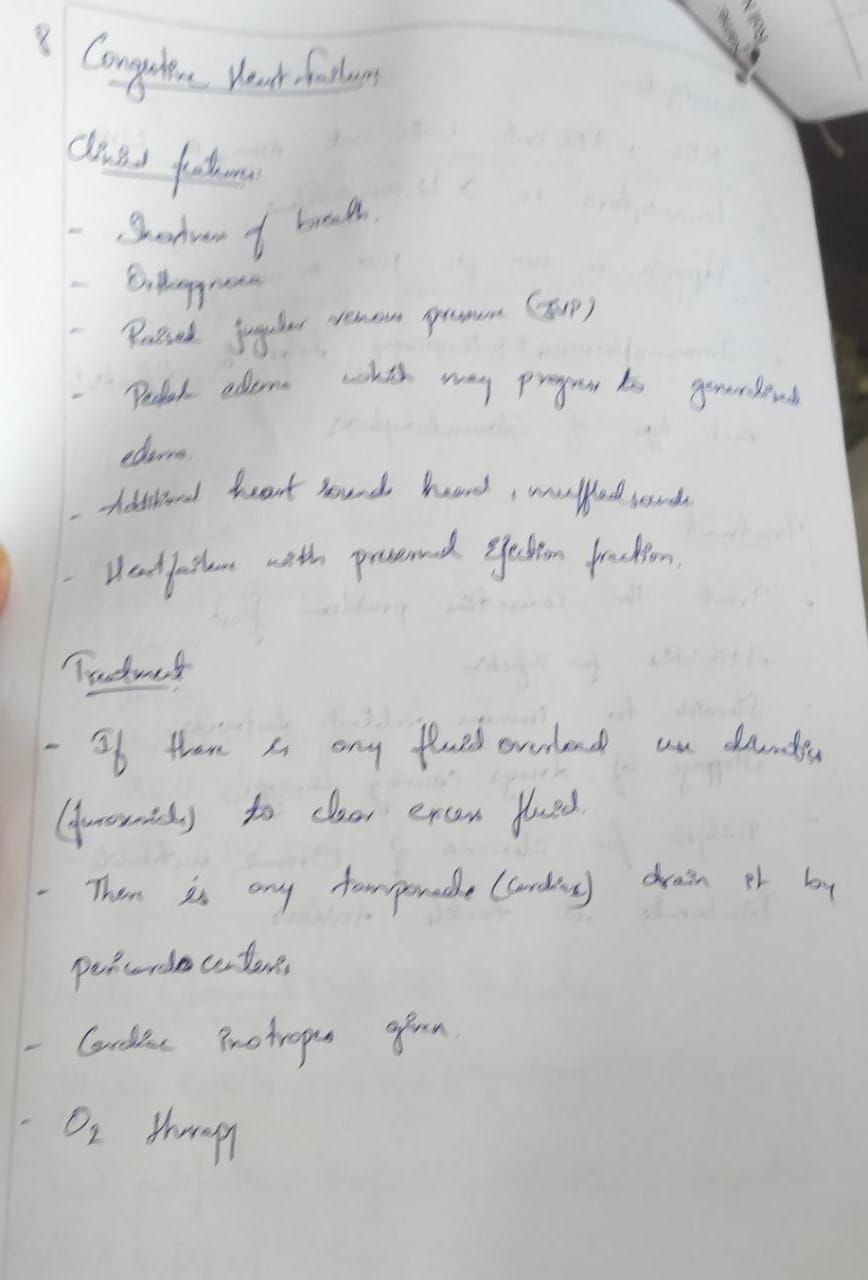 8 Congestive Heart failure
Clinical features:
- Shortness of breath.
- Orthopnoea
- Raised jugular venous pressure (JVP)
- Pedal edema which may progress to generalised
edema.
- Additional heart sounds heard, muffled sounds
- Heart failure with preserved Ejection fraction.
Treatment
- If there is any fluid overload use diuretics
(furosemide) to clear excess fluid.
- There is any tamponade (Cardiac) drain it by
pericardocentesis
- Cardiac inotropes given.
- O2 therapy